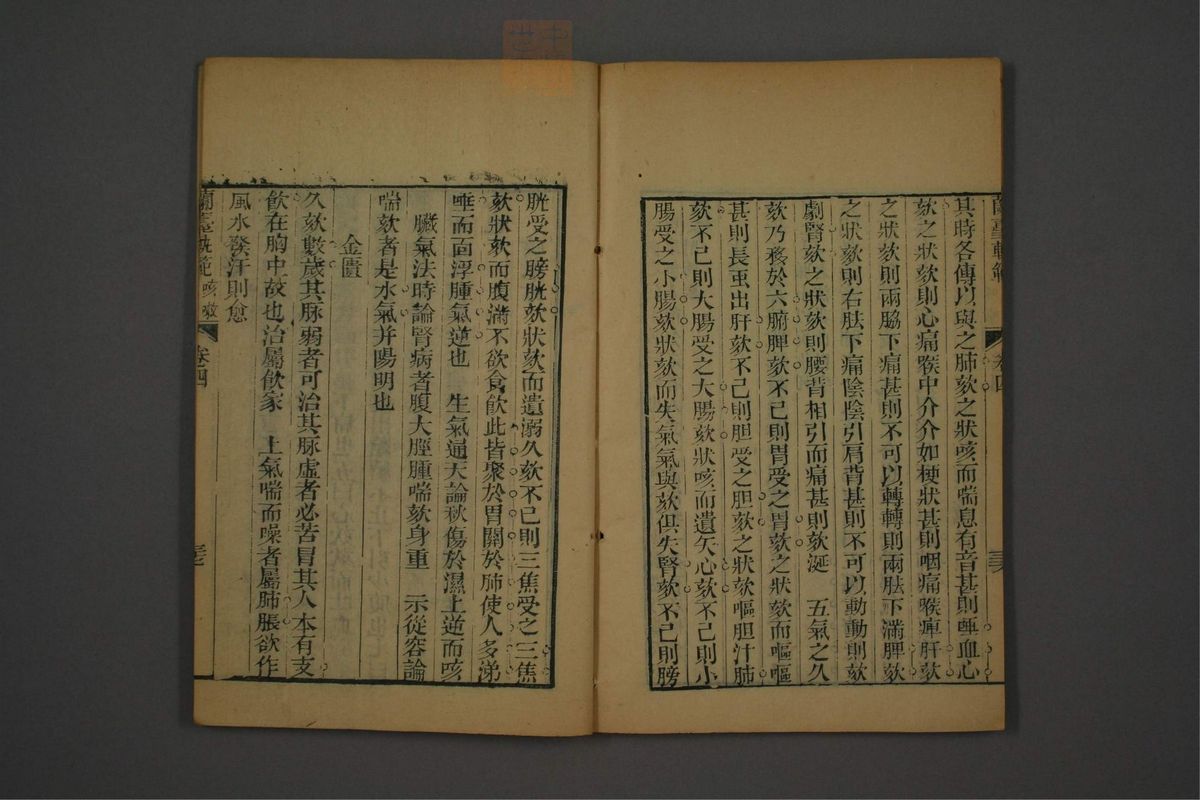 蘭臺軌範
卷四
其時各傳以與之肺欬之狀咳而喘息有音甚則唾血心
欬之狀欬則心痛喉中介介如梗狀甚則咽痛喉痺肝欬
之狀欬則兩脇下痛甚則不可以轉轉則兩胠下滿脾欬
之狀欬則右胠下痛陰陰引肩背甚則不可以動動則欬
劇腎欬之狀欬則腰背相引而痛甚則欬涎　五氣之久
欬乃移於六腑脾欬不已則胃受之胃欬之狀欬而嘔嘔
甚則長虫出肝欬不已則胆受之胆欬之狀欬嘔胆汁肺
欬不已則大腸受之大腸欬狀咳而遺矢心欬不已則小
腸受之小腸欬狀欬而失氣氣與欬俱失腎欬不已則膀
胱受之膀胱欬狀欬而遺溺久欬不已則三焦受之三焦
欬狀欬而腹滿不欲食飲此皆聚於胃關於肺使人多涕
唾而面浮腫氣逆也　生氣通天論秋傷於濕上逆而咳
臟氣法時論腎病者腹大脛腫喘欬身重　示從容論
喘欬者是水氣并陽明也
金匱
久欬數歲其脉弱者可治其脉虛者必苦冒其人本有支
飲在胸中故也治屬飲家　上氣喘而噪者屬肺脹欲作
風水發汗則愈
蘭臺軌範
咳嗽
卷四